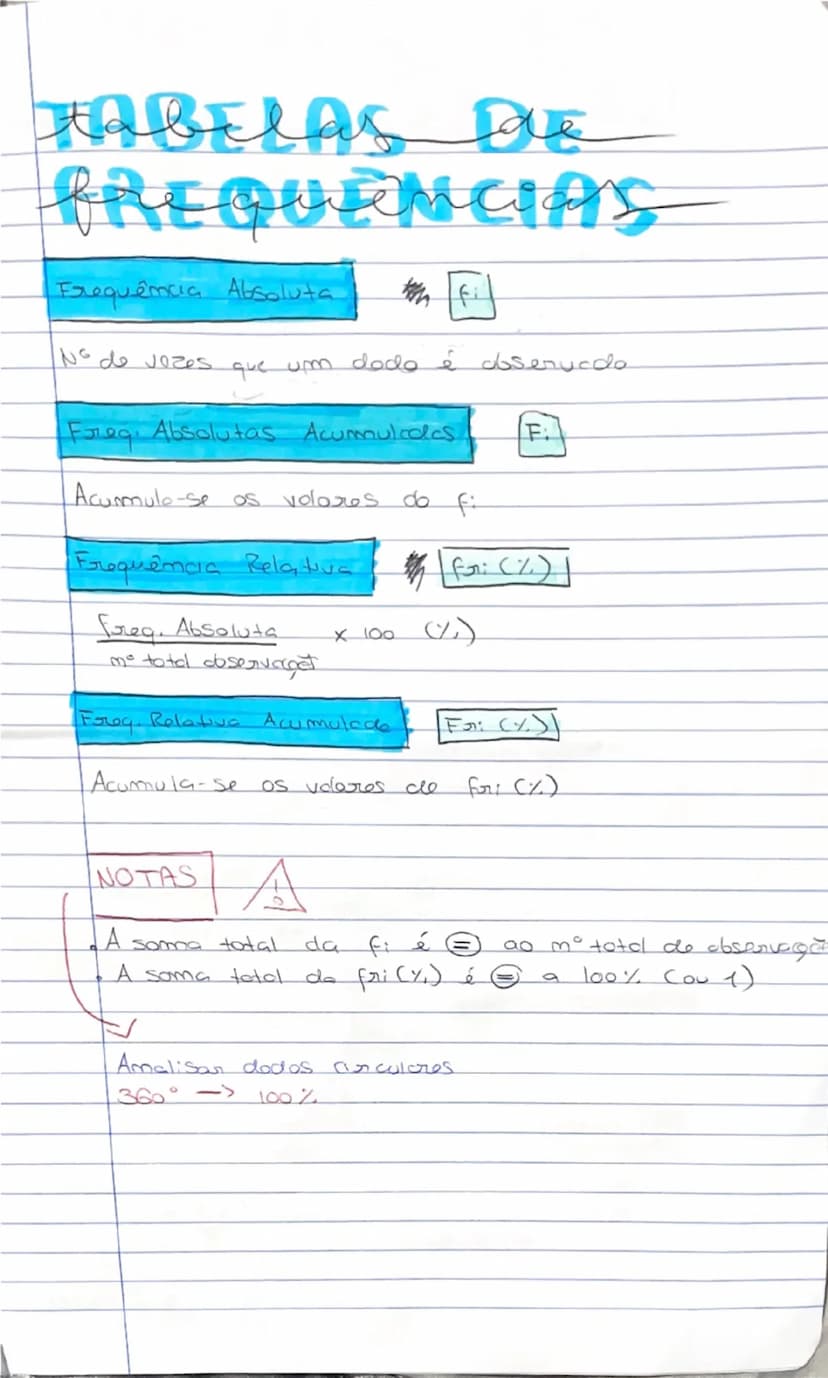 TABELAS DE
FREQUÊNCIAS
tabelas de
frequências
Frequência Absoluta fi
Nº de vezes que um dado é observado
Freq. Absolutas Acumuladas Fi
Acumula-se os valores do fi
Frequência Relativa fri (%)
Freq. Absoluta x 100 (%)
nº total observaçõ
Freq. Relativa Acumulada Fri (%)
Acumula-se os valores de fri (%)
NOTAS
!
• A soma total da fi é = ao nº total de observaçõ
• A soma total da fri (%) é = a 100% (ou 1)
Analisar dados circulares
360° → 100%